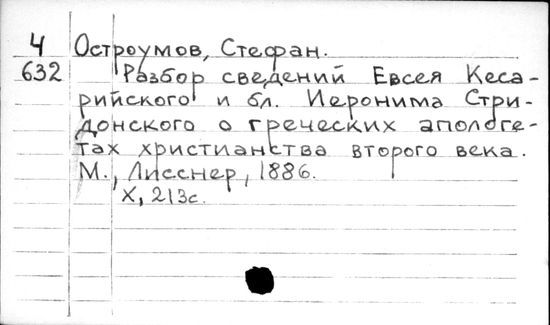 4 Остроумов, Стефан.
632 Разбор сведений Евсея Кеса-
рийского и бл. Иеронима Стри-
донского о греческих апологе-
тах христианства второго века.
М., Лисснер, 1886.
X, 213с.